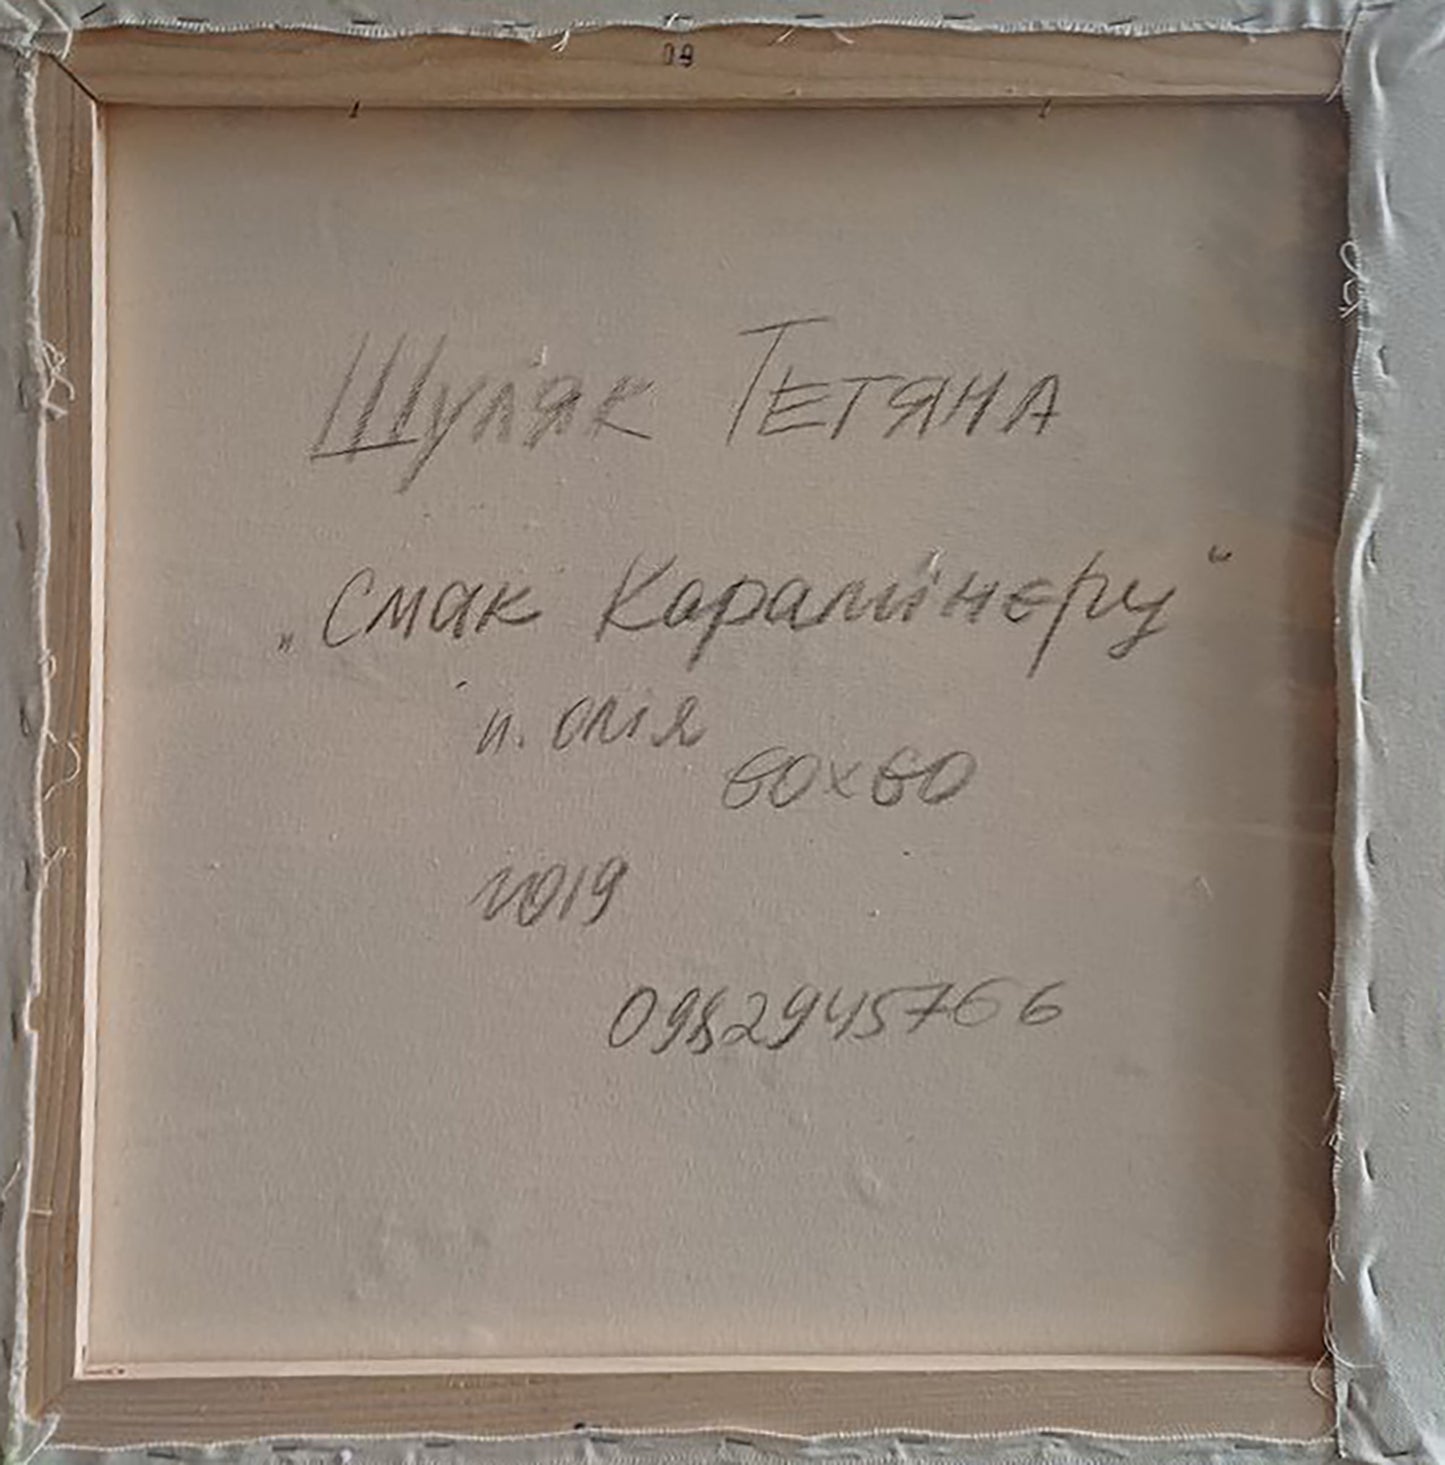 60
Шуляк Тетяна
„Смак Кораліінеру“
п. олія
60х60
2019
0982945766